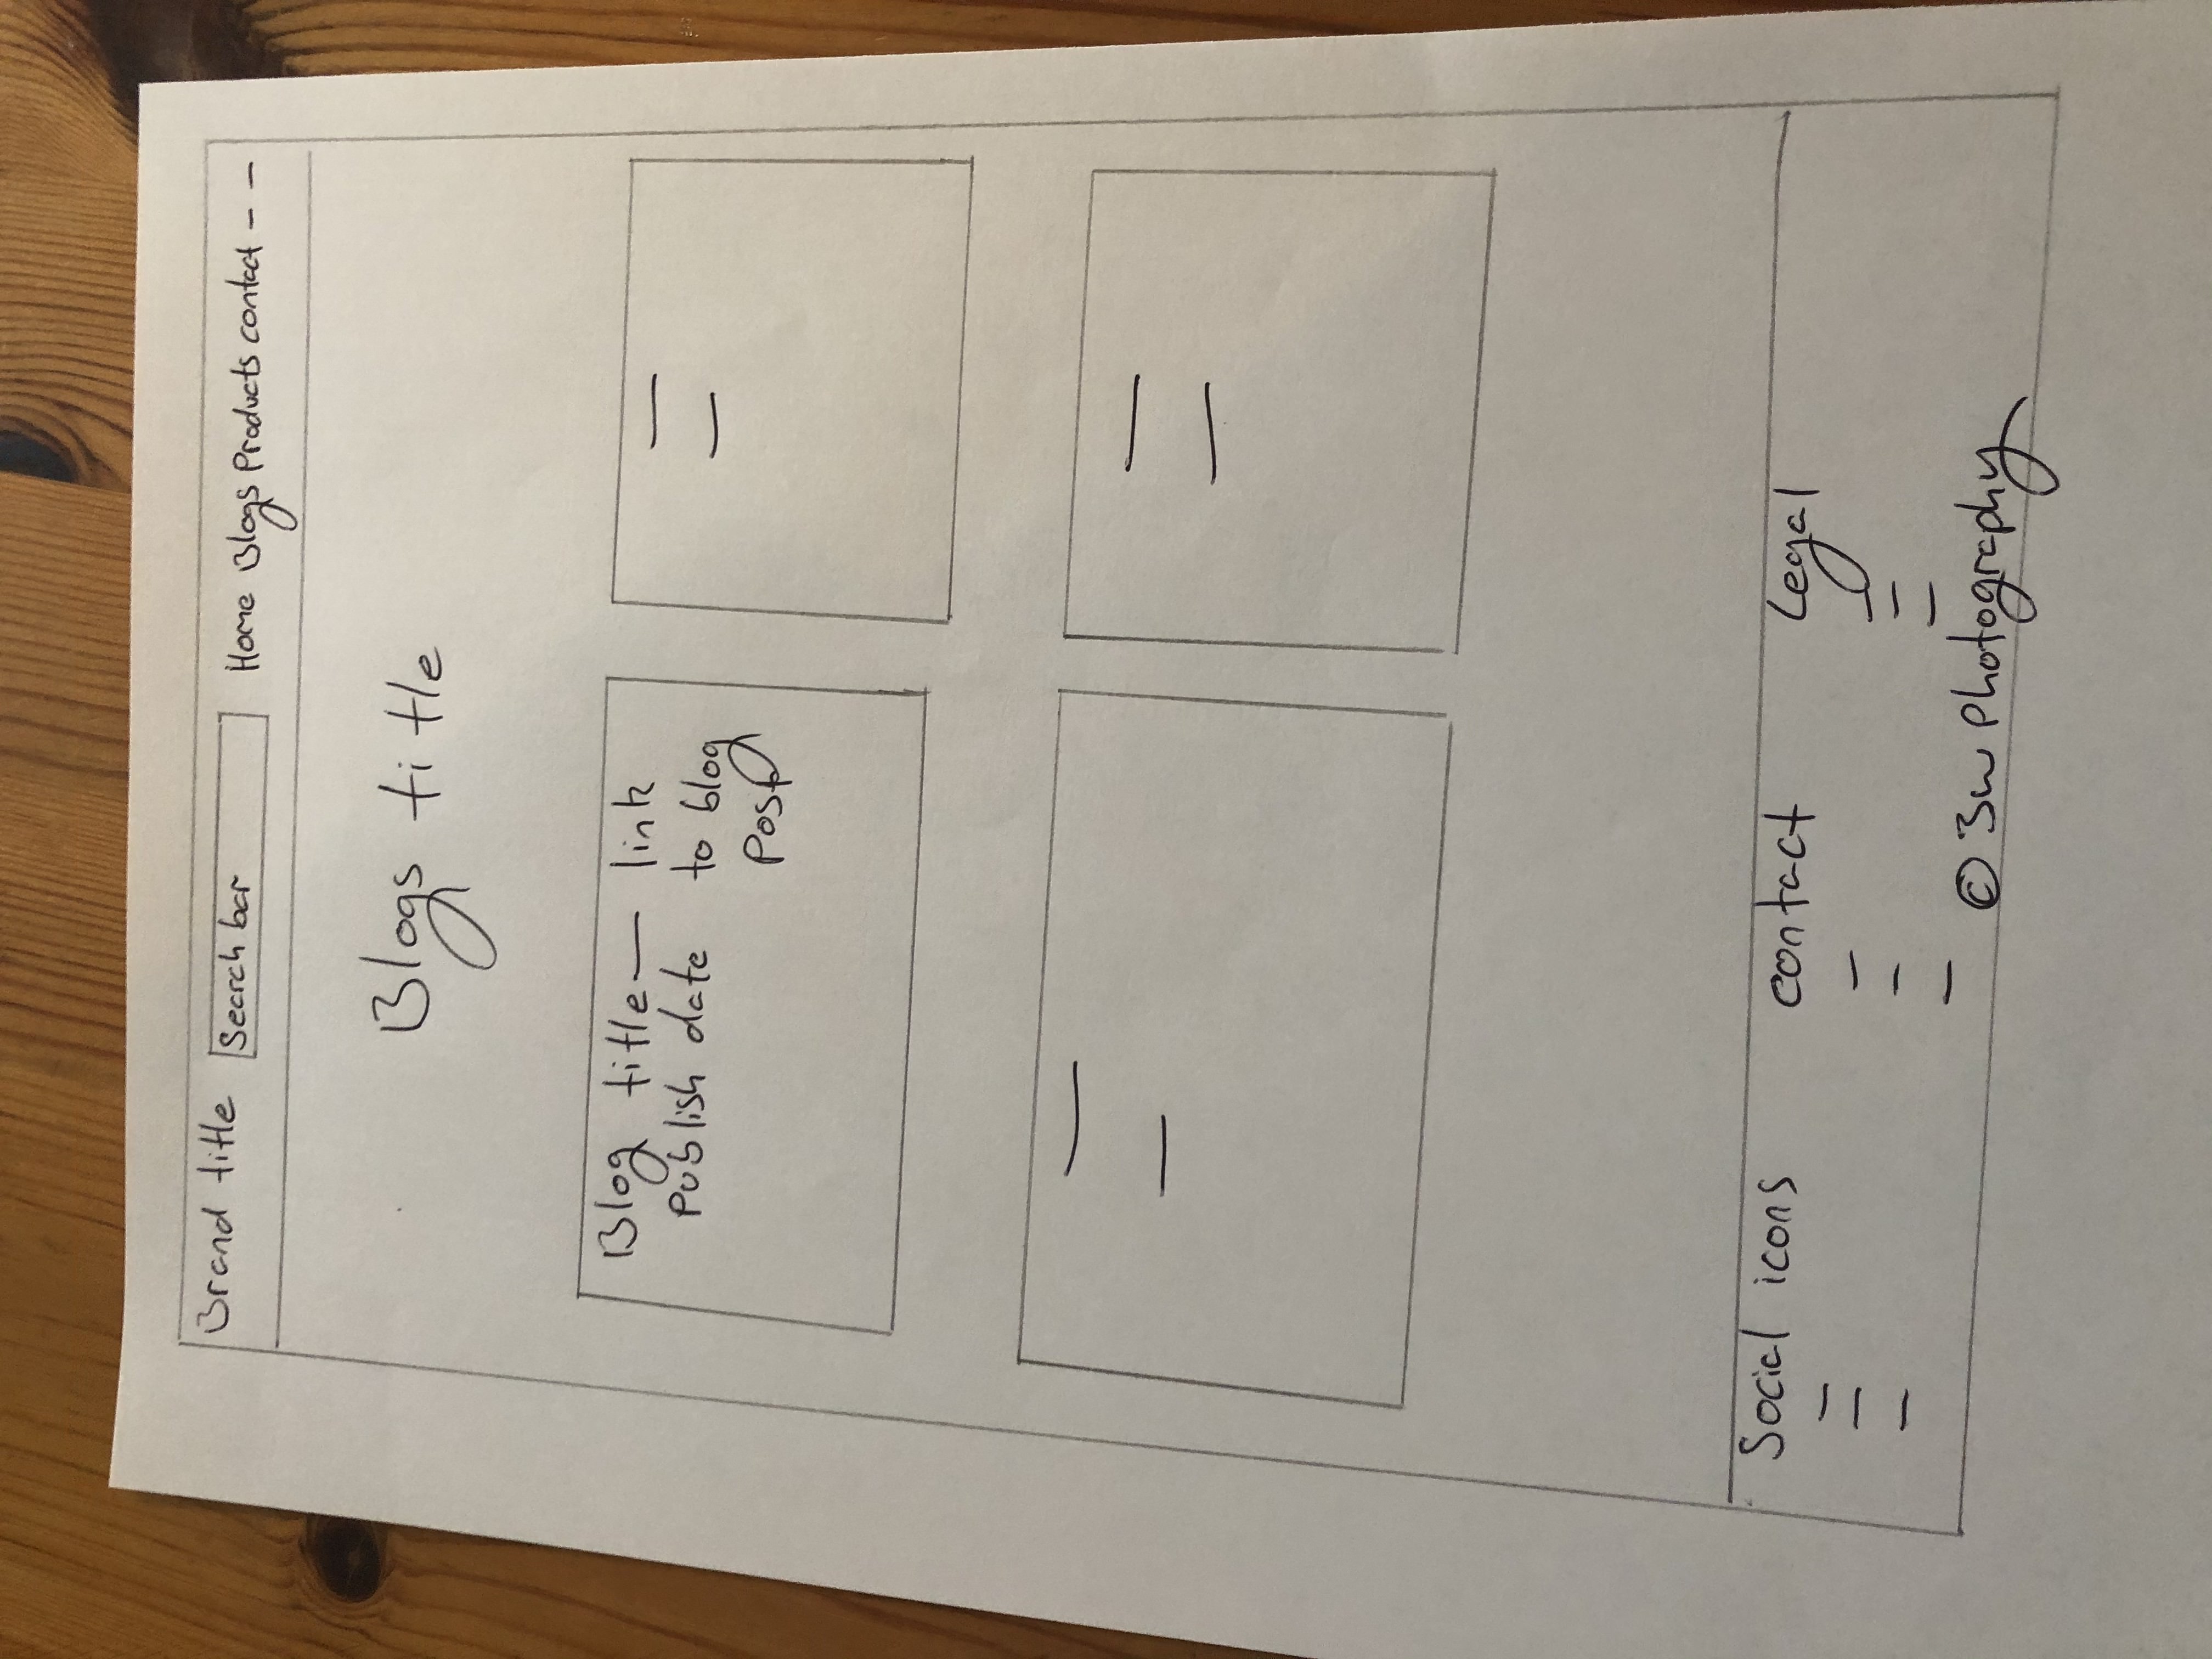 Brand title
Search bar
Home Blogs Products contact - -
Blogs title
Blog title — link
Publish date to blog
Post
Social icons
contact
Legal
© 3w Photography